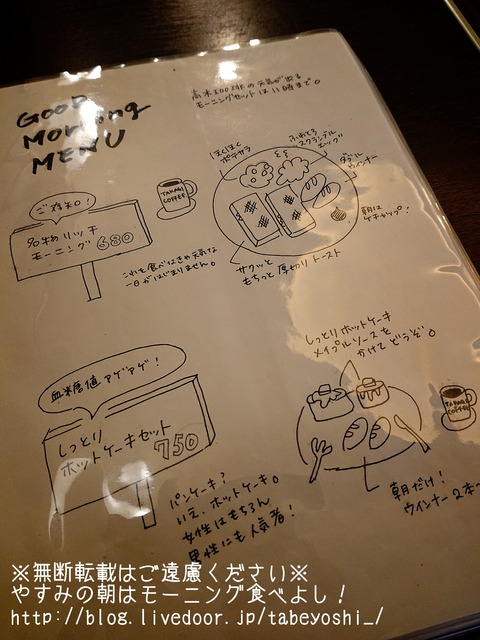 GOOD
MorNing
MENU
高木珈琲の元気が出る
モーニングセットは11時まで。
ほくほく
ポテサラ
ふわとろ
スクランブル
エッグ
ダブル
ウインナー
朝は
ケチャップ!
サクッと
もちっと厚切りトースト
TAKAGI
COFFEE
ご存知!
名物リッチ
モーニング 680
これを食べなきゃ元気な
一日がはじまりません。
しっとりホットケーキ
メイプルソースを
かけてどうぞ。
血糖値アゲアゲ!
しっとり
ホットケーキセット
750
TAKAGI
COFFEE
パンケーキ?
いえ、ホットケーキ。
女性はもちろん
男性にも人気者!
朝だけ!
ウインナー2本
※無断転載はご遠慮ください※
やすみの朝はモーニング食べよし!
http://blog.livedoor.jp/tabeyoshi_/